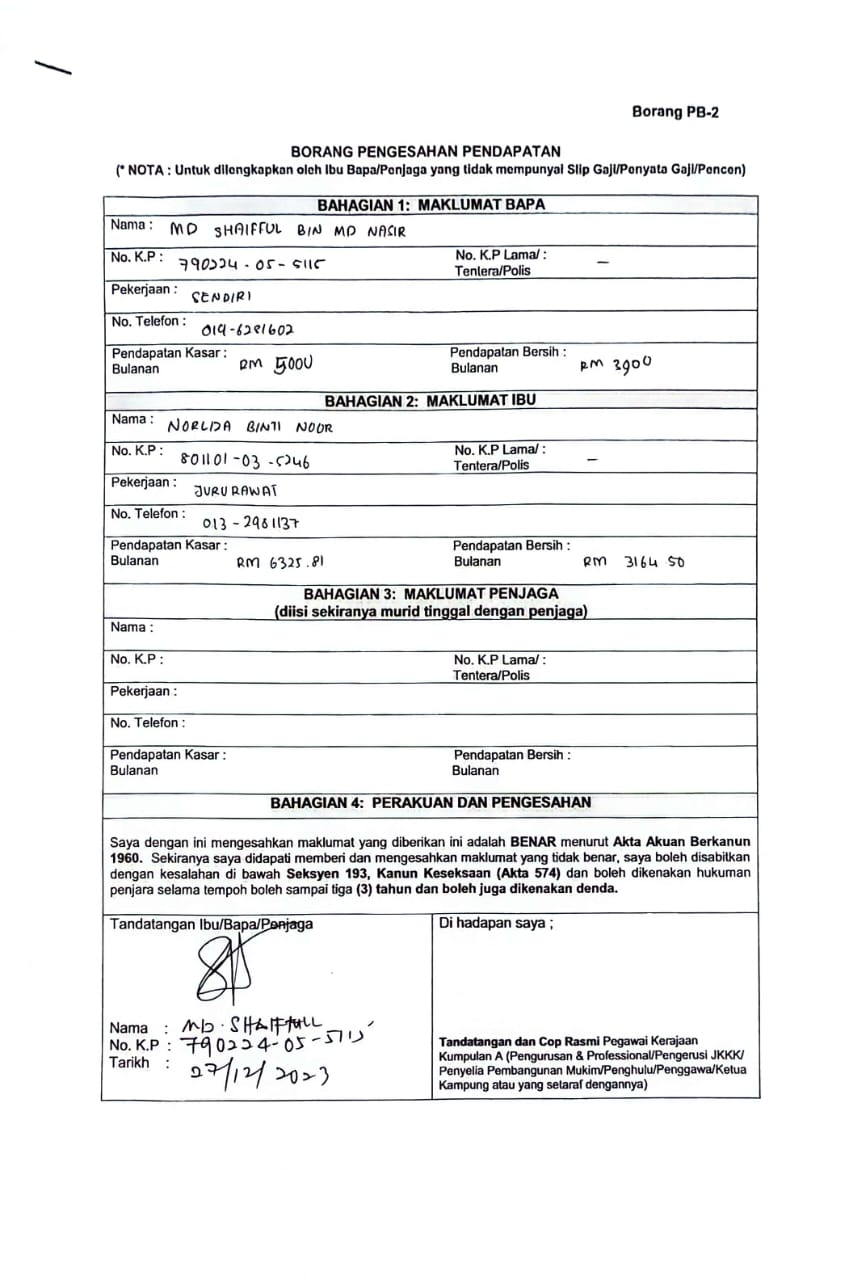 Borang PB-2
BORANG PENGESAHAN PENDAPATAN
(* NOTA : Untuk dilengkapkan oleh Ibu Bapa/Penjaga yang tidak mempunyai Slip Gaji/Penyata Gaji/Pencen)
BAHAGIAN 1: MAKLUMAT BAPA
Nama : MD SHAIFFUL BIN MD NASIR
No. K.P : 790224-05-5115 No. K.P Lama/ : –
Tentera/Polis
Pekerjaan : SENDIRI
No. Telefon : 019-6281602
Pendapatan Kasar : RM 5000 Pendapatan Bersih : RM 3900
Bulanan Bulanan
BAHAGIAN 2: MAKLUMAT IBU
Nama : NORLIDA BINTI NOOR
No. K.P : 801101-03-5246 No. K.P Lama/ : –
Tentera/Polis
Pekerjaan : JURURAWAT
No. Telefon : 013-2981137
Pendapatan Kasar : RM 6325.81 Pendapatan Bersih : RM 3164 50
Bulanan Bulanan
BAHAGIAN 3: MAKLUMAT PENJAGA
(diisi sekiranya murid tinggal dengan penjaga)
Nama :
No. K.P : No. K.P Lama/ :
Tentera/Polis
Pekerjaan :
No. Telefon :
Pendapatan Kasar : Pendapatan Bersih :
Bulanan Bulanan
BAHAGIAN 4: PERAKUAN DAN PENGESAHAN
Saya dengan ini mengesahkan maklumat yang diberikan ini adalah BENAR menurut Akta Akuan Berkanun
1960. Sekiranya saya didapati memberi dan mengesahkan maklumat yang tidak benar, saya boleh disabitkan
dengan kesalahan di bawah Seksyen 193, Kanun Keseksaan (Akta 574) dan boleh dikenakan hukuman
penjara selama tempoh boleh sampai tiga (3) tahun dan boleh juga dikenakan denda.
Tandatangan Ibu/Bapa/Penjaga
Nama : MD. SHAIFFULL
No. K.P : 790224-05-5115
Tarikh : 27/12/2023
Di hadapan saya ;
Tandatangan dan Cop Rasmi Pegawai Kerajaan
Kumpulan A (Pengurusan & Professional/Pengerusi JKKK/
Penyelia Pembangunan Mukim/Penghulu/Penggawa/Ketua
Kampung atau yang setaraf dengannya)